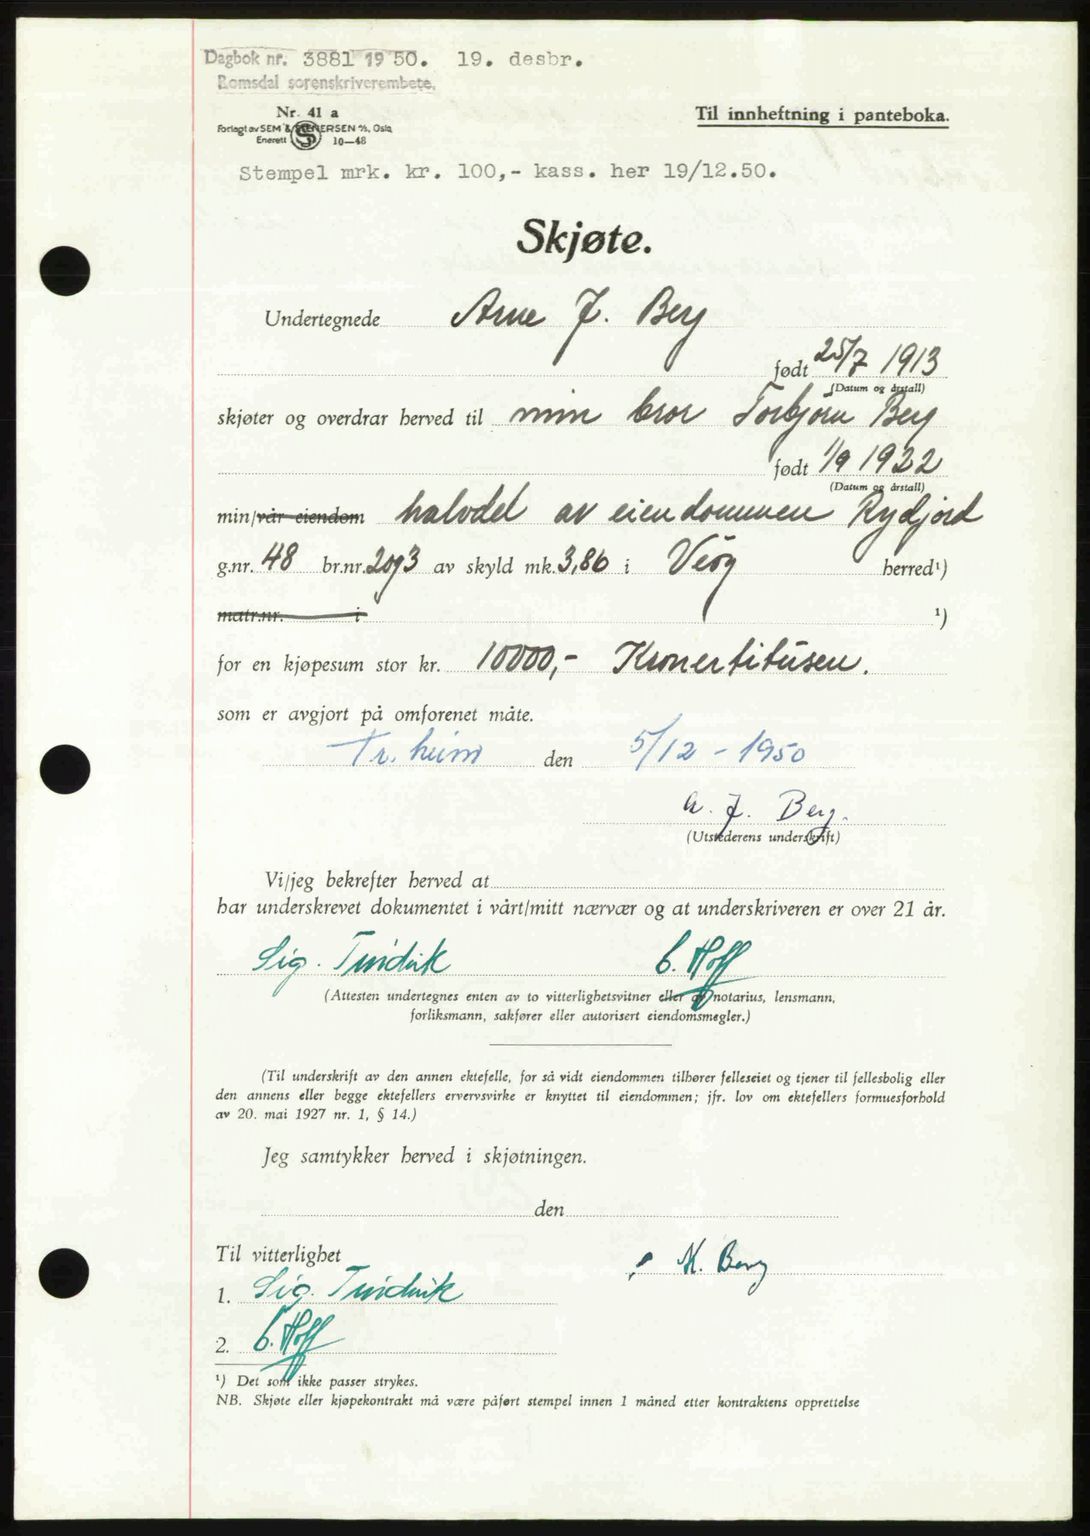 Dagbok nr. 3881 1950. 19. desbr.
Romsdal sorenskriverembete.
Nr. 41 a
Til innheftning i panteboka.
Forlagt av SEM & STENERSEN A/S, Oslo
Enerett 10—48
Stempel mrk. kr. 100,- kass. her 19/12.50.
Skjøte.
Undertegnede Arne J. Berg
født 25/7 1913
(Datum og årstall)
skjøter og overdrar herved til min bror Torbjørn Berg
født 1/9 1922
(Datum og årstall)
min/vår eiendom halvdel av eiendommen Rydjord
g.nr. 48 br.nr. 2og3 av skyld mk. 3,86 i Veøy herred¹)
matr.nr. i ¹)
for en kjøpesum stor kr. 10000,- Kronertitusen.
som er avgjort på omforenet måte.
Tr.heim den 5/12 - 1950
A. J. Berg.
(Utstederens underskrift)
Vi/jeg bekrefter herved at
har underskrevet dokumentet i vårt/mitt nærvær og at underskriveren er over 21 år.
Sig. Tindvik C. Hoff
(Attesten undertegnes enten av to vitterlighetsvitner eller av notarius, lensmann,
forliksmann, sakfører eller autorisert eiendomsmegler.)
(Til underskrift av den annen ektefelle, for så vidt eiendommen tilhører felleseiet og tjener til fellesbolig eller
den annens eller begge ektefellers ervervsvirke er knyttet til eiendommen; jfr. lov om ektefellers formuesforhold
av 20. mai 1927 nr. 1, § 14.)
Jeg samtykker herved i skjøtningen.
den
Til vitterlighet
K. Berg
1. Sig. Tindvik
2. C. Hoff
¹) Det som ikke passer strykes.
NB. Skjøte eller kjøpekontrakt må være påført stempel innen 1 måned etter kontraktens opprettelse